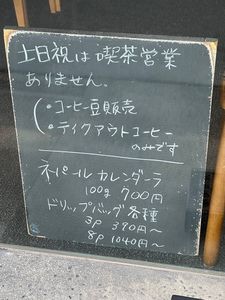 土日祝は喫茶営業
ありません。
(・コーヒー豆販売
・テイクアウトコーヒー
のみです
ネパール カレンダーラ
100g 700円
ドリップバッグ各種
3p 390円～
8p 1040円～